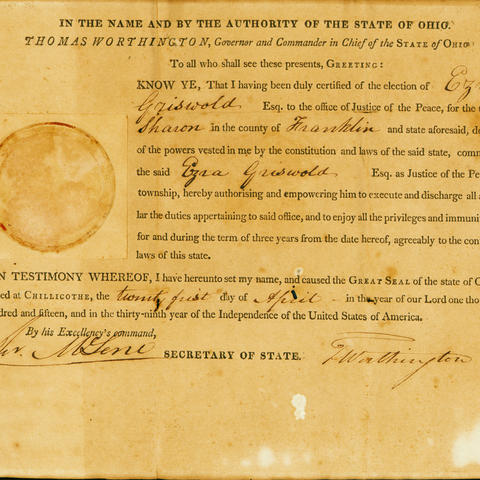 IN THE NAME AND BY THE AUTHORITY OF THE STATE OF OHIO.
THOMAS WORTHINGTON, Governor and Commander in Chief of the STATE OF OHIO
To all who shall see these presents, GREETING:
KNOW YE, That I having been duly certified of the election of Ez
Griswold Esq. to the office of Justice of the Peace, for the t
Sharon in the county of Franklin and state aforesaid, d
of the powers vested in me by the constitution and laws of the said state, comm
the said Ezra Griswold Esq. as Justice of the Pe
township, hereby authorising and empowering him to execute and discharge all a
lar the duties appertaining to said office, and to enjoy all the privileges and immuni
for and during the term of three years from the date hereof, agreeably to the con
laws of this state.
N TESTIMONY WHEREOF, I have hereunto set my name, and caused the GREAT SEAL of the state of O
ed at CHILLICOTHE, the twenty first day of April in the year of our Lord one tho
dred and fifteen, and in the thirty-ninth year of the Independence of the United States of America.
By his Excellency's command,
McLene SECRETARY OF STATE. T Worthington